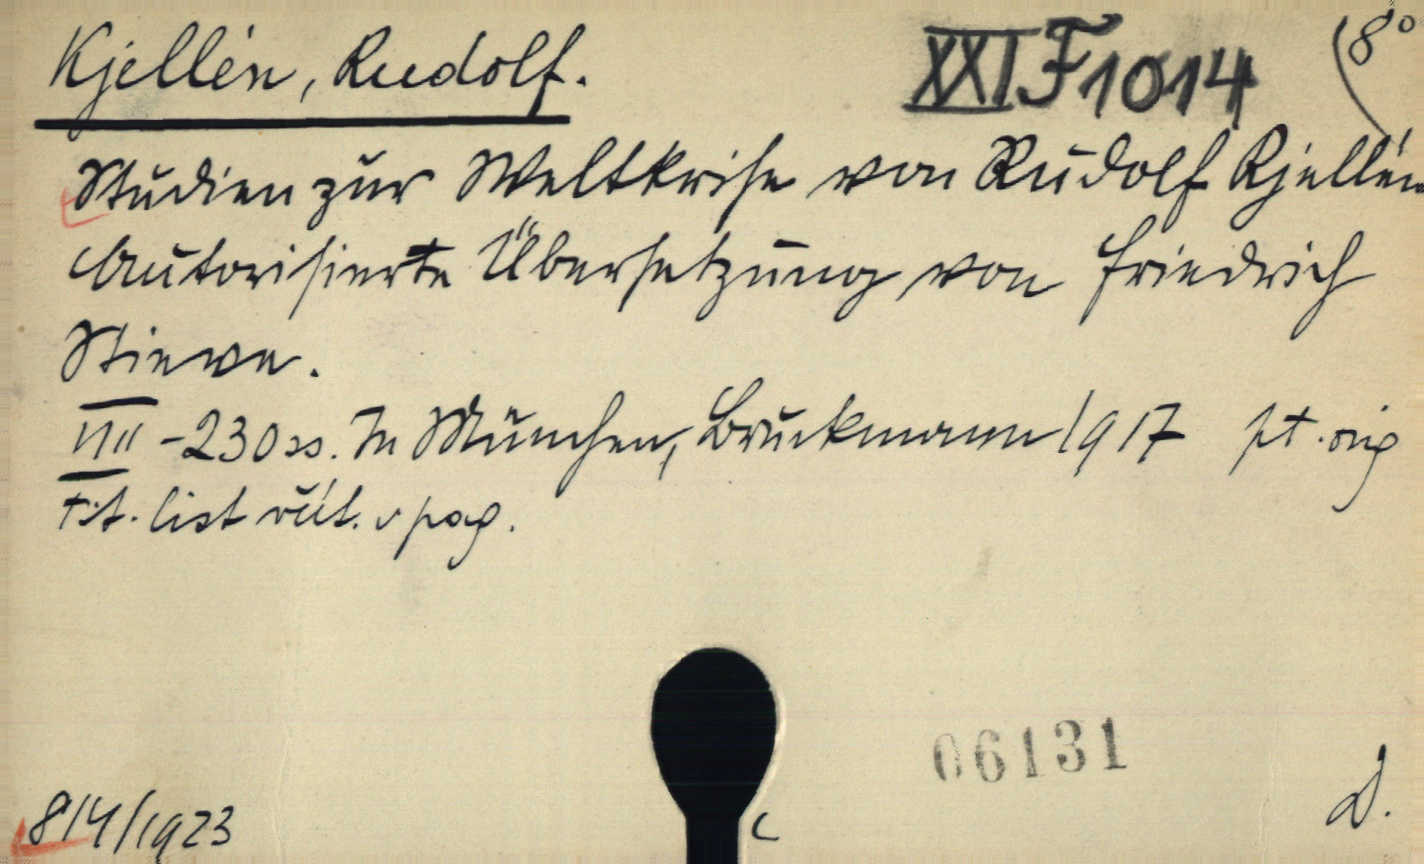 Kjellén, Rudolf.
XXI F 1014
(8°
Studien zur Weltkrise von Rudolf Kjellén
Autorisierte Übersetzung von Friedrich
Stieve.
VIII - 230 ss. In München, Bruckmann 1917 pt. orig
tit. list rúl. v pag.
06131
D.
814/1923
c